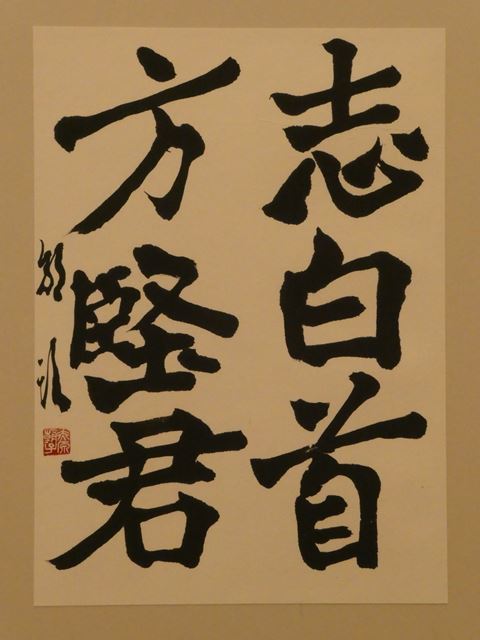 志白首
方堅君